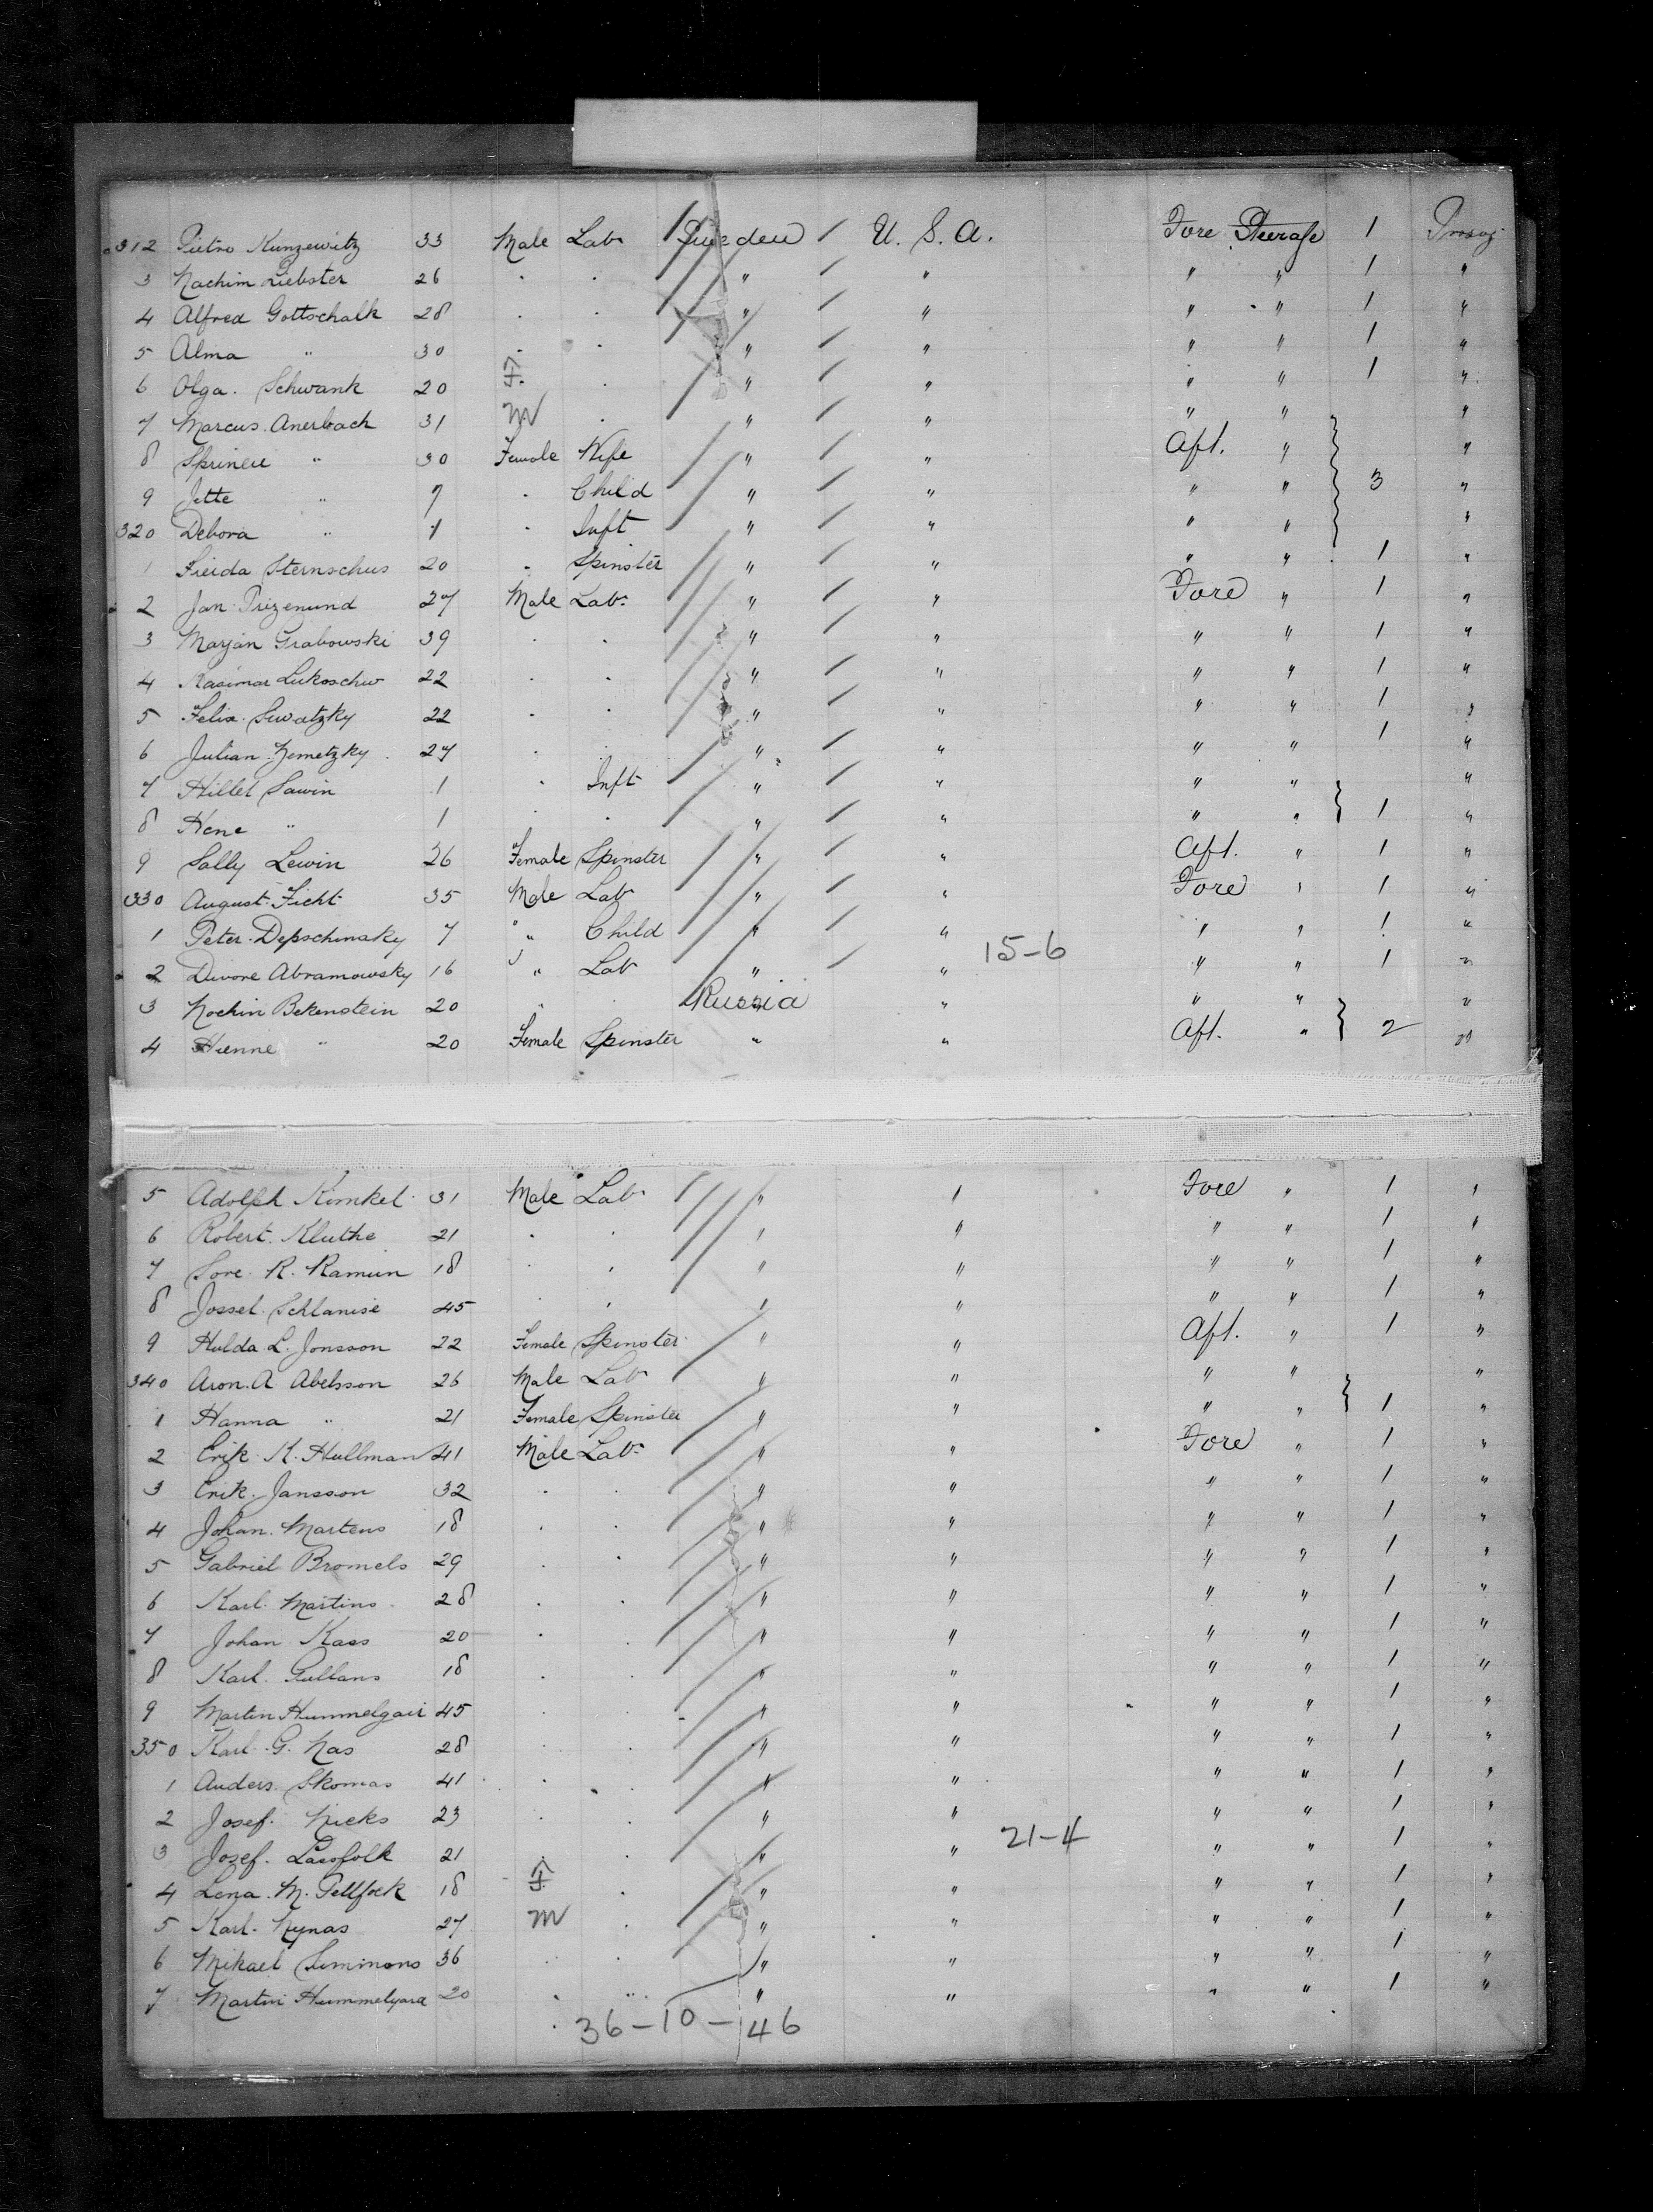 312 Pietro Kunzewitz 33 Male Lab. Sweden U. S. A. Fore Steerage 1
3 Nachim Liebster 26 . . " " " " 1 "
4 Alfred Gottschalk 28 . . " " " " 1 "
5 Alma " 30 . . " " " " 1 "
6 Olga. Schwank 20 F. . " " " " 1 "
7 Marcus. Anerbach 31 M . " " " " "
8 " 30 Female Wife " " Aft. " "
9 Jette " 7 . Child " " " " 3 "
320 Debora " 1 . Inft " " " " "
1 Frieda Sternschus 20 . Spinster " " " " 1 "
2 Jan Prizenund 27 Male Lab. " " Fore " 1 "
3 Marjan Grabowski 39 . . " " " " 1 "
4 Kasimar Lukoschw 22 . . " " " " 1 "
5 Felix. Suwatzky 22 . . " " " " 1 "
6 Julian. Zemetzky 27 . . " " " " 1 "
7 Hillel Sawin 1 . Inft " " " " "
8 Hene " 1 . . " " " " 1 "
9 Sally Lewin 26 Female Spinster " " Aft. " 1 "
330 August. Ficht 35 Male Lab " " Fore " 1 "
1 Peter. Depschinsky 7 " Child " " " " 1 "
2 Dwore Abramowsky 16 " Lab " " 15-6 " " 1 "
3 Nochin Bekenstein 20 " Russia " " " "
4 Hienne " 20 Female Spinster " " Aft. " 2 "
5 Adolph Kunkel 31 Male Lab. " " Fore " 1 "
6 Robert. Kluthe 21 . . " " " " 1 "
7 Sore R. Ramun 18 . . " " " " 1 "
8 Jossel. Schlamise 45 . . " " " " 1 "
9 Hulda L. Jonsson 22 Female Spinster " " Aft. " 1 "
340 Aron. A Abelsson 26 Male Lab " " " " "
1 Hanna " 21 Female Spinster " " " " 1 "
2 Erik K. Hullman 41 Male Lab. " " Fore " 1 "
3 Erik. Jansson 32 . . " " " " 1 "
4 Johan. Martens 18 . . " " " " 1 "
5 Gabriel Bromels 29 . . " " " " 1 "
6 Karl. Martins 28 . . " " " " 1 "
7 Johan Kass 20 . . " " " " 1 "
8 Karl. Gullans 18 . . " " " " 1 "
9 Martin Hummelgair 45 . . " " " " 1 "
350 Karl. G. Nas 28 . . " " " " 1 "
1 Anders. Skomas 41 . . " " " " 1 "
2 Josef. Nicks 23 . . " " " " 1 "
3 Josef. 21 . . " " 21-4 " " 1 "
4 Lena. M. Pellfolk 18 F. . " " " " 1 "
5 Karl. Nynas 27 M . " " " " 1 "
6 Mikael Simmons 36 . . " " " " 1 "
7 Martin Hummelgard 20 . " " " " " 1 "
36-10-46